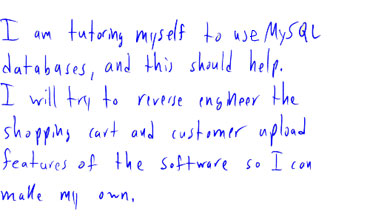 I am tutoring myself to use MySQL
databases, and this should help.
I will try to reverse engineer the
shopping cart and customer upload
features of the software so I can
make my own.